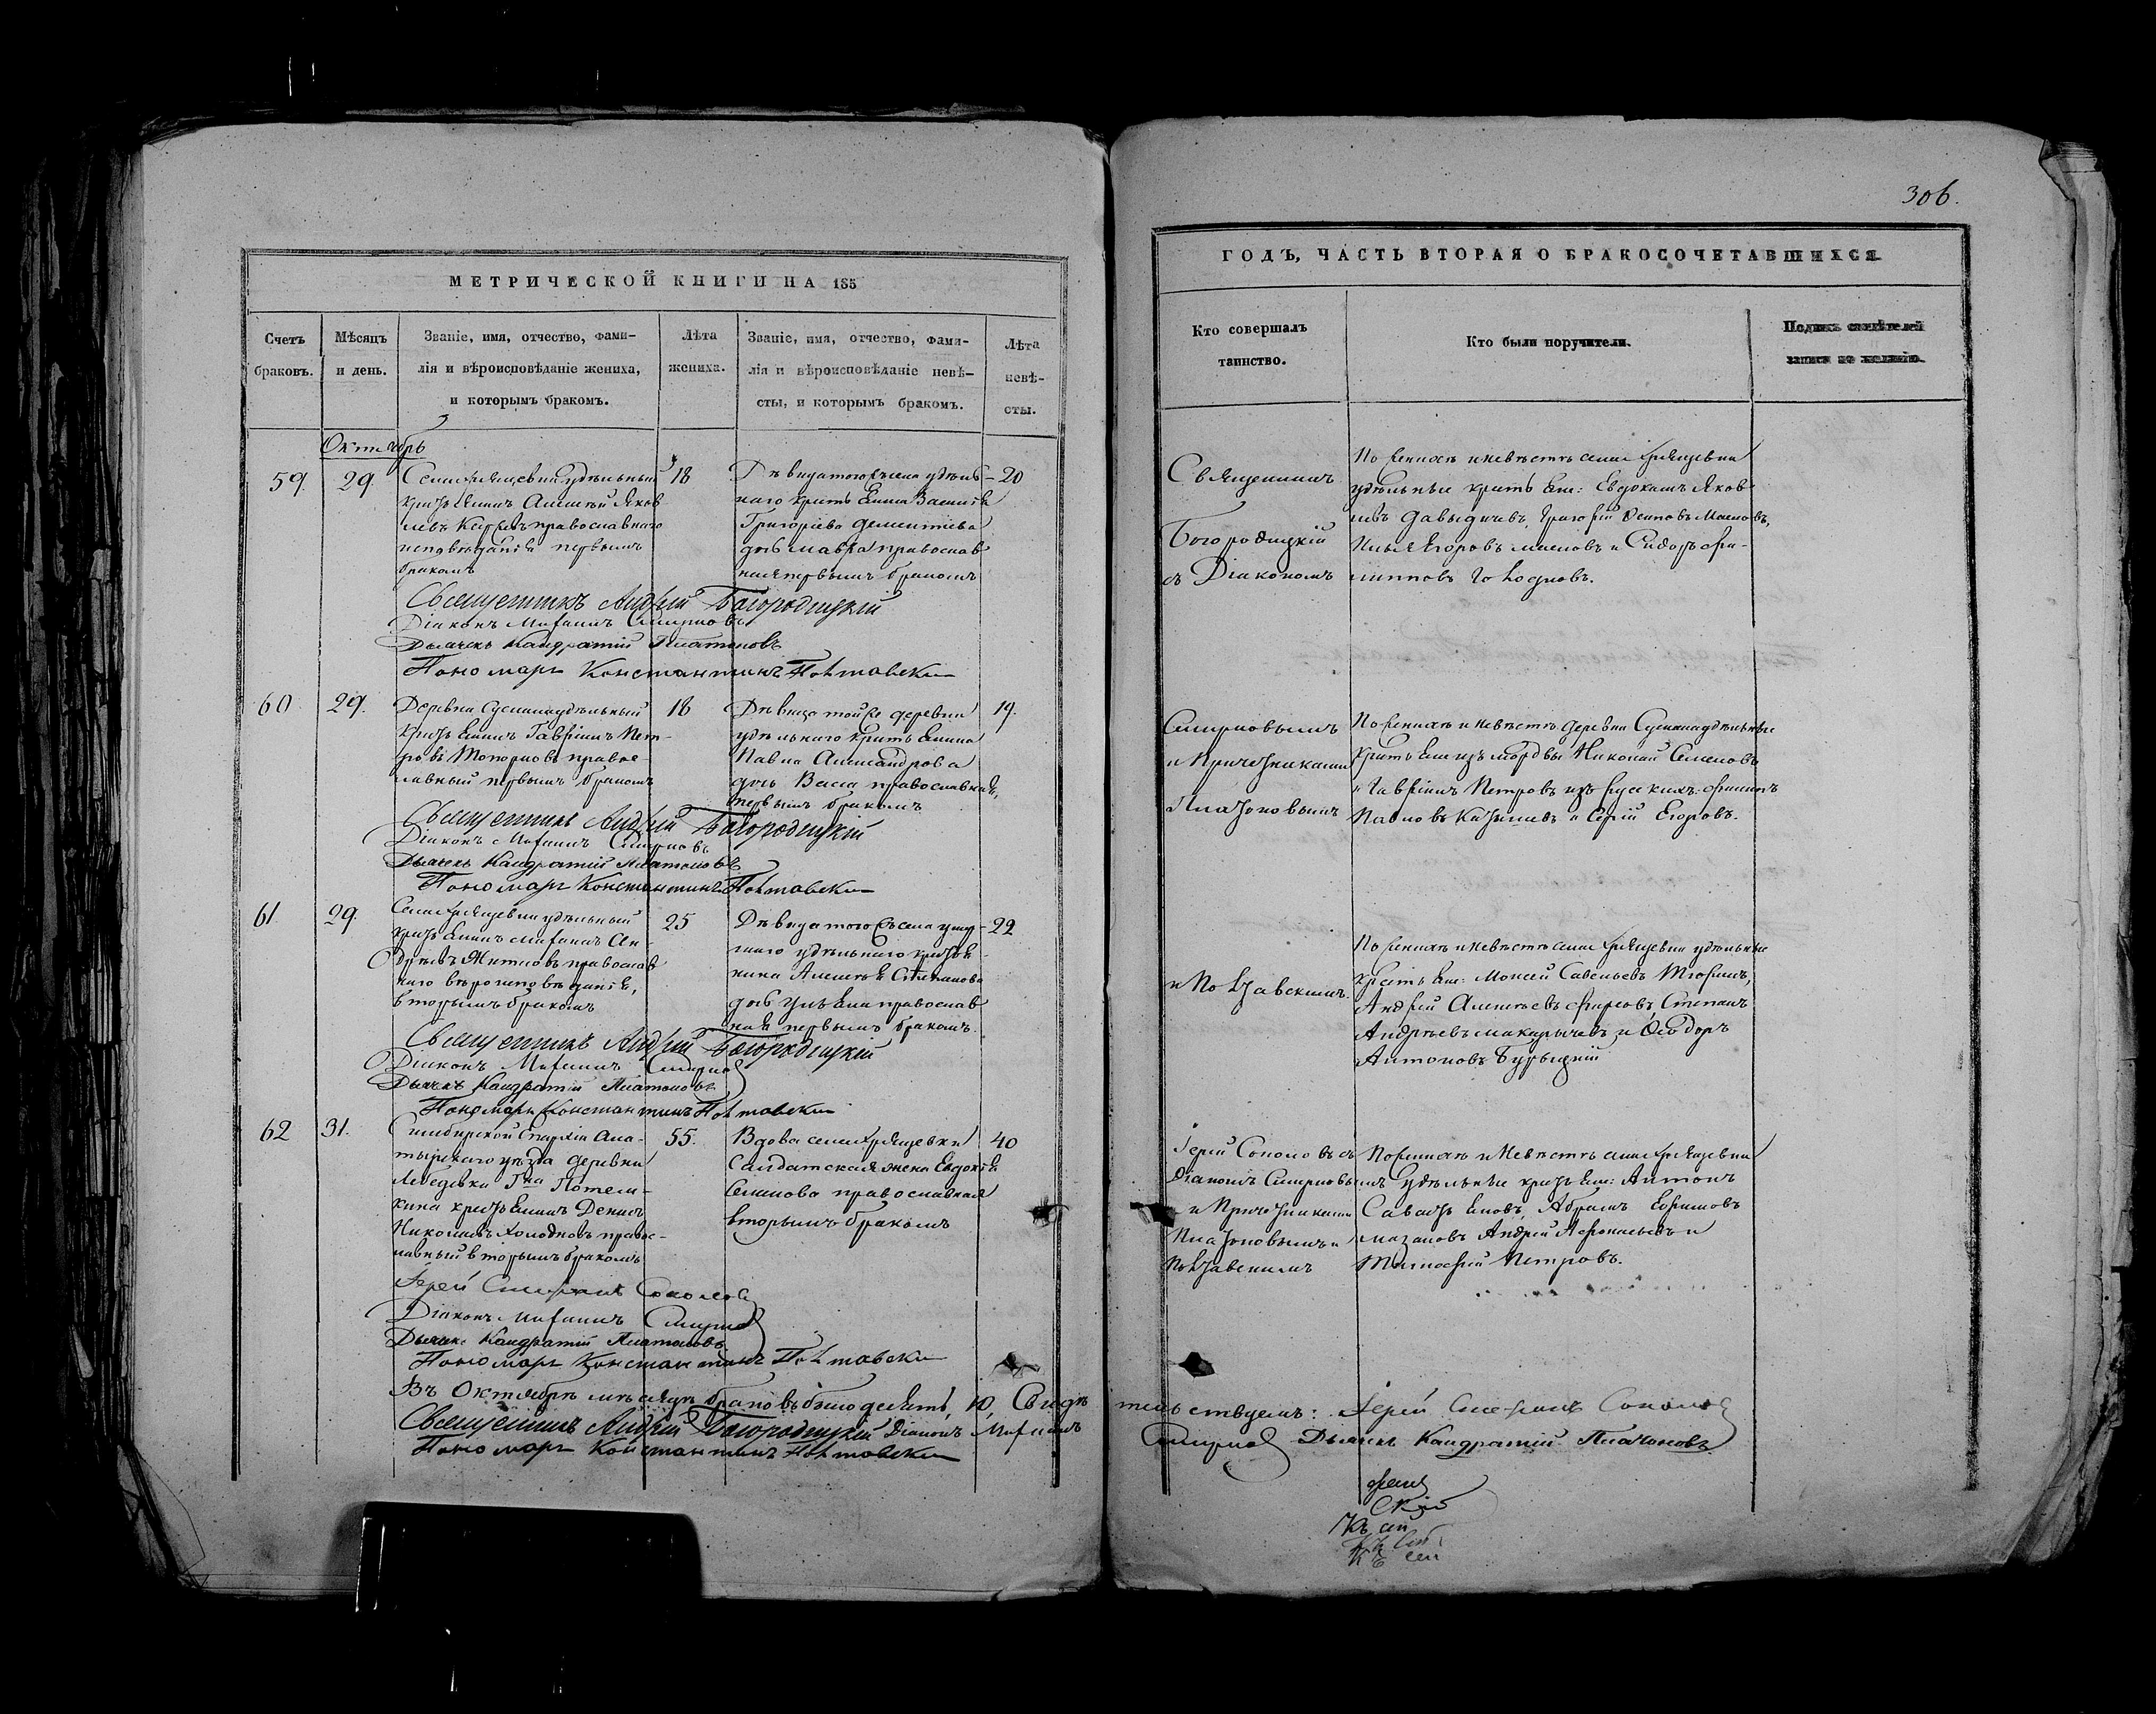 306.
МЕТРИЧЕСКОЙ КНИГИ НА 185
ГОДЪ, ЧАСТЬ ВТОРАЯ О БРАКОСОЧЕТАВШИХСЯ
Счетъ браковъ.
Мѣсяцъ и день.
Званіе, имя, отчество, фами-
лія и вѣроисповѣданіе жениха,
и которымъ бракомъ.
Лѣта жениха.
Званіе, имя, отчество, фами-
лія и вѣроисповѣданіе невѣ-
сты, и которымъ бракомъ.
Лѣта невѣ-
сты.
Кто совершалъ
таинство.
Кто были поручители.
Подпись свидѣтелей
записи по желанію.
Октябрь
59. 29.
удѣльный
крестьянинъ Алексѣй Яков
левъ православнаго
исповѣданія первымъ
бракомъ
18
Дѣвица тогожъ села удѣль-
наго крестьянина Василія
Григорьева Дементьева
дочь Мавра православ
ная первымъ бракомъ
20
Священникъ
Богородицкій
съ Діакономъ
По женихѣ и невѣстѣ села
удѣльные Евдокимъ Яков
левъ Давыдичевъ, Григорій Осиповъ Масловъ,
Илья Егоровъ Масловъ и Сидоръ Фи-
липповъ
Священникъ Андрей Богородицкій
Діаконъ Михаилъ Смирновъ
Дьячекъ Кандратій Платоновъ
Пономарь Константинъ Полтавски
60. 29.
Деревни удѣльный
крестьянинъ Гавріилъ Пет-
ровъ Топорновъ правос-
лавный первымъ бракомъ
18
Дѣвица тойже деревни
удѣльнаго крестьянина
Павла Александрова
дочь Васса православная,
первымъ бракомъ
19.
Смирновымъ
и Причетниками
Платоновымъ
По женихѣ и невѣстѣ деревни удѣльные
изъ мордвы Николай Семеновъ
и Гавріилъ Петровъ изъ русскихъ Филиппъ
Павловъ и Сергій Егоровъ.
Священникъ Андрей Богородицкій
Діаконъ Михаилъ Смирновъ
Дьячекъ Кандратій Платоновъ
Пономарь Константинъ Полтавски
61. 29.
удѣльный
крестьянинъ Михаилъ Ан-
дреевъ Житловъ православ
наго вѣроисповѣданія,
вторымъ бракомъ
25
Дѣвица тогожъ села умер-
шаго удѣльнаго крестья-
нина Алексѣя Степанова
дочь Ульяна православ
ная первымъ бракомъ.
22
и Полтавскимъ.
По женихѣ и невѣстѣ села удѣльные
Моисей Савельевъ
Андрей Алексѣевъ Степанъ
Андреевъ Макарычевъ и Ѳеодоръ
Антоновъ
Священникъ Андрей Богородицкій
Діаконъ Михаилъ Смирнов
Дьячекъ Кандратій Платоновъ
Пономарь Константинъ Полтавски
62 31.
Симбирской Епархіи Ала-
тырскаго уѣзда деревни
Лебедевки Гна Потем-
кина крестьянинъ Денисъ
Николаевъ Холодновъ правос-
лавный вторымъ бракомъ
55.
Вдова села
Салдатская жена Евдокія
Семенова православная
вторымъ бракомъ
40
Іерей Соколовъ съ
Діакономъ Смирновымъ
и Причетниками
Платоновымъ и
Полтавскимъ
По женихѣ и невѣстѣ села
Удѣльные Антонъ
Абрамъ Ефимовъ
Мазановъ Андрей Афонасьевъ и
Тимофей Петровъ.
Іерей Соколов
Діаконъ Михаилъ Смирнов
Дьячекъ Кандратій Платоновъ
Пономарь Константинъ Полтавски
Въ Октябрѣ мѣсяцѣ браковъ было десять, 10, Свидѣ
тельствуемъ: Іерей Соколов
Священникъ Андрей Богородицкій Діаконъ Михаилъ
Смирнов Дьячекъ Кандратій Платоновъ
Пономарь Константинъ Полтавски